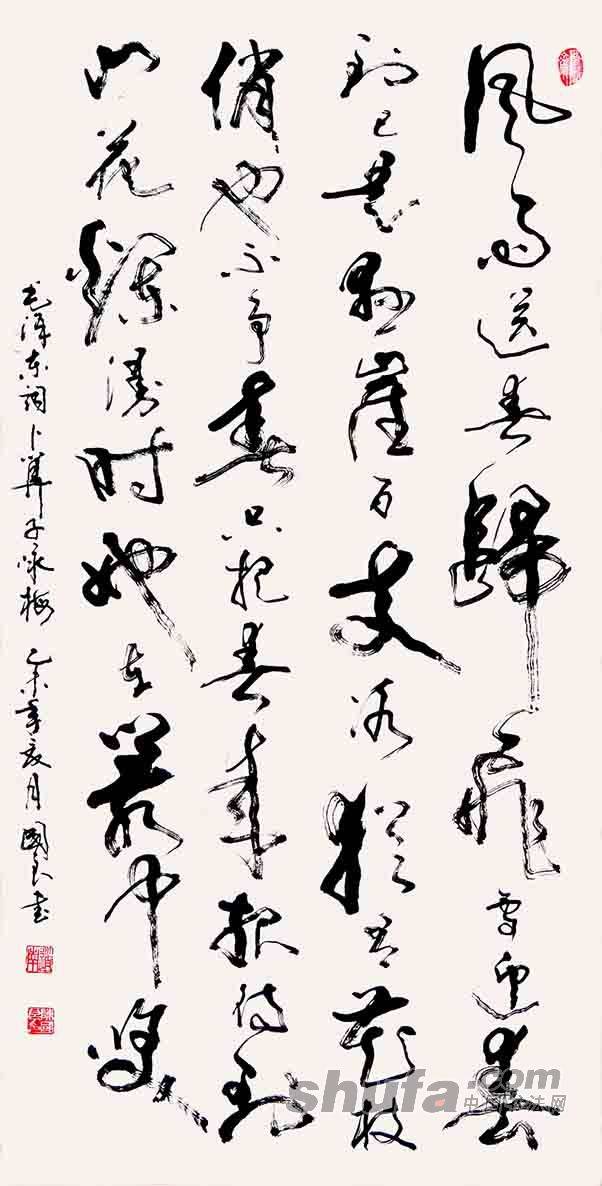 風雨送春歸飛雪迎春
到已是悬崖百丈冰犹有花枝
俏也不争春只把春来报待到
山花爛漫时她在叢中笑
毛泽东词卜算子咏梅 乙未年月國书
shufa.com
中国书法网